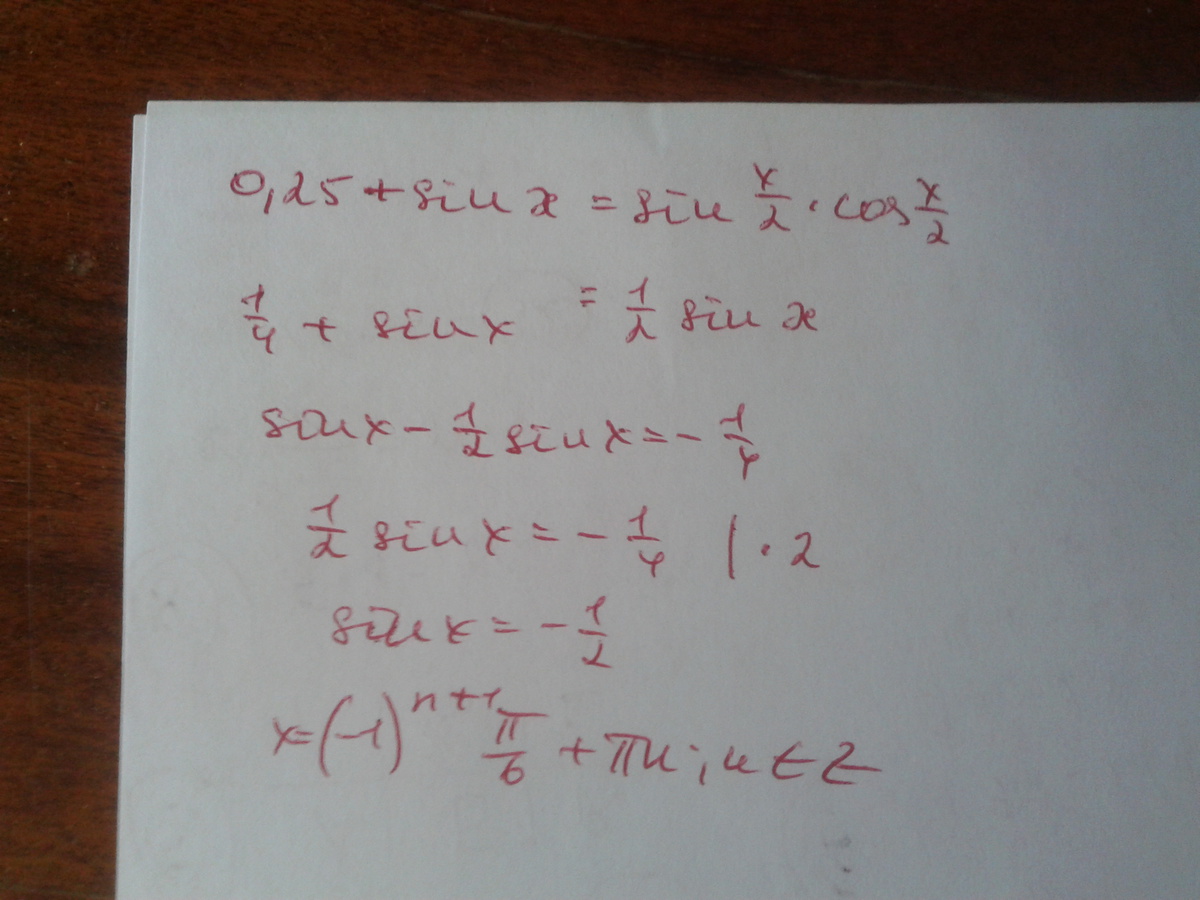 0,25 + sin x = sin x/2 · cos x/2
1/4 + sin x = 1/2 sin x
sin x - 1/2 sin x = - 1/4
1/2 sin x = - 1/4 | · 2
sin x = - 1/2
x = (-1)^(n+1) π/6 + πn; n ∈ Z